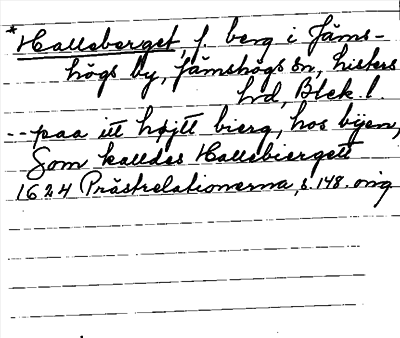 *Halleberget, f. berg i Jäms-
högs by, Jämshögs sn, Listers
hrd, Blek. l.
-- paa itt højtt bierg, hos byen,
Som kalldes Hallebiergett
1624 Prästrelationerna, s. 148. orig